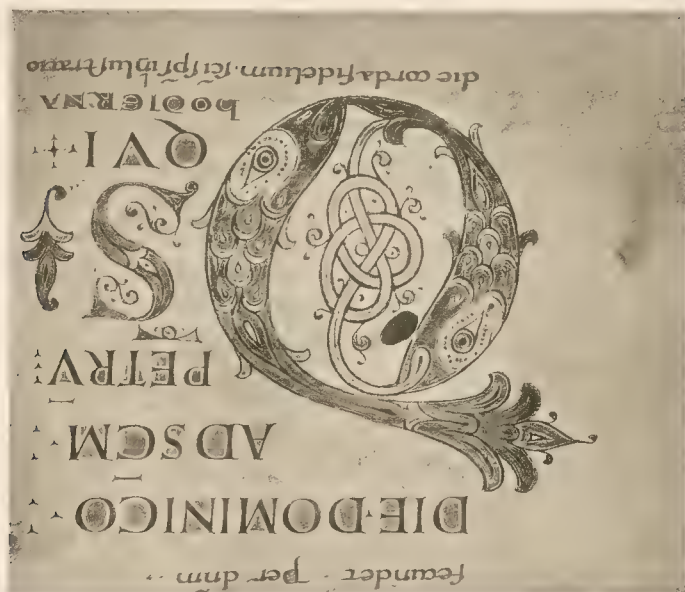 fecundet · per dnm
DIE·DOMINICO
AD SCM
PETRV
DS
QVI
hODIERNA
die corda fidelium. sci sps inlustratio